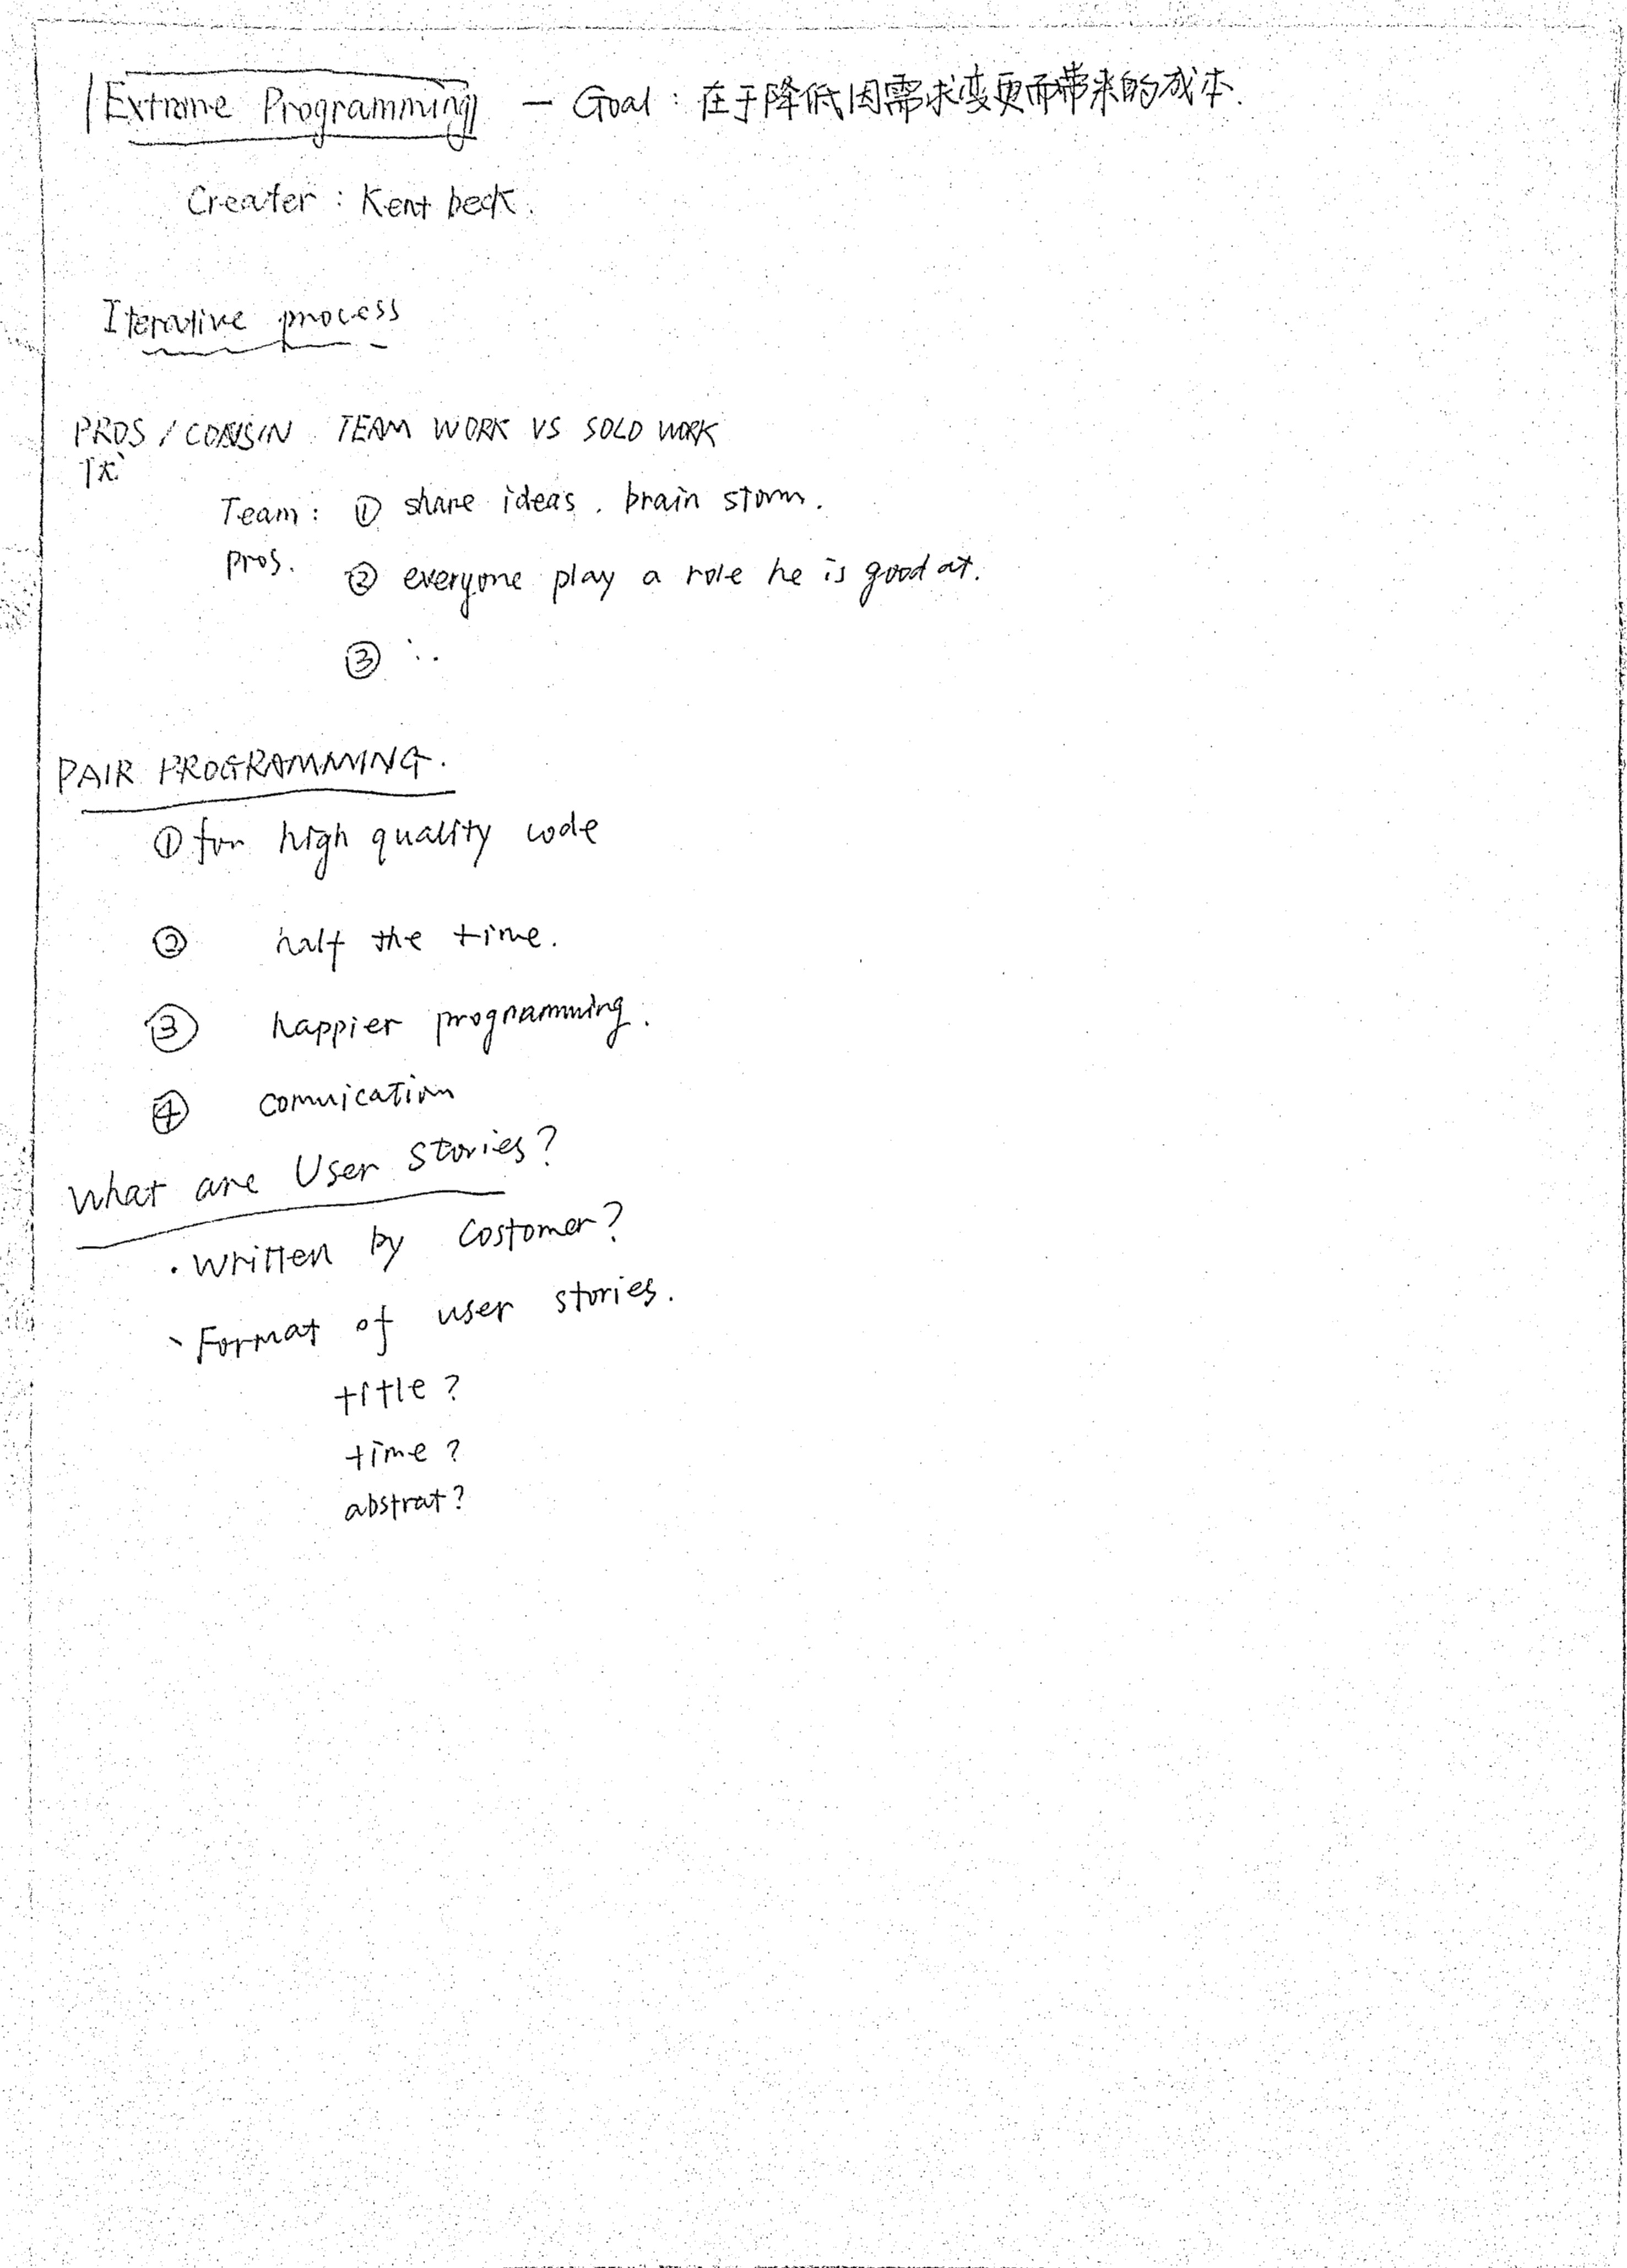 Extreme Programming — Goal : 在于降低因需求变更而带来的成本.
Creater : Kent beck.
Iterative process
PROS / CONSIN TEAM WORK VS SOLO WORK
Team : ① share ideas . brain storm.
pros. ② everyone play a role he is good at.
③ ...
PAIR PROGRAMMING.
① for high quality code
② half the time.
③ happier programming.
④ comuication
What are User Stories?
· Written by Costomer?
· Format of user stories.
title ?
time ?
abstrat ?